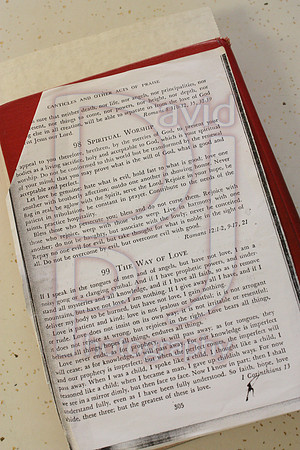 CANTICLES AND OTHER ACTS OF PRAISE
sure that neither death, nor life, nor angels, nor principalities, nor
present, nor things to come, nor powers, nor height, nor depth, nor
in all creation, will be able to separate us from the love of God
Jesus our Lord.
98 SPIRITUAL WORSHIP
appeal to you therefore, brethren, by the mercies of God, to present your
bodies as a living sacrifice, holy and acceptable to God, which is your spiritual
worship. Do not be conformed to this world but be transformed by the renewal
of your mind, that you may prove what is the will of God, what is good and
acceptable and
Let love be genuine; hate what is evil, hold fast to what is good; love one
another with brotherly affection; outdo one another in showing honor. Never
flag in zeal, be aglow with the Spirit, serve the Lord. Rejoice in your hope, be
patient in tribulation, be constant in prayer. Contribute to the needs of the
saints, practice hospitality.
Bless those who persecute you; bless and do not curse them. Rejoice with
those who rejoice, weep with those who weep. Live in harmony with one
another; do not be haughty, but associate with the lowly; never be conceited.
Repay no one evil for evil, but take thought for what is noble in the sight of
all. Do not be overcome by evil, but overcome evil with good.
Romans 12:1-2, 9-17, 21
99 THE WAY OF LOVE
If I speak in the tongues of men and of angels, but have not love, I am a
noisy gong or a clanging cymbal. And if I have prophetic powers, and under-
stand all mysteries and all knowledge, and if I have all faith, so as to remove
mountains, but have not love, I am nothing. If I give away all I have, and if I
deliver my body to be burned, but have not love, I gain nothing.
Love is patient and kind; love is not jealous or boastful; it is not arrogant
or rude. Love does not insist on its own way; it is not irritable or resentful;
it does not rejoice at wrong, but rejoices in the right. Love bears all things,
believes all things, hopes all things, endures all things.
Love never ends; as for prophecies, they will pass away; as for tongues, they
will cease; as for knowledge, it will pass away. For our knowledge is imperfect
and our prophecy is imperfect; but when the perfect comes, the imperfect will
pass away. When I was a child, I spoke like a child, I thought like a child, I
reasoned like a child; when I became a man, I gave up childish ways. For now
we see in a mirror dimly, but then face to face. Now I know in part; then I shall
understand fully, even as I have been fully understood. So faith, hope, love
abide, these three; but the greatest of these is love.
1 Corinthians 13
505
David